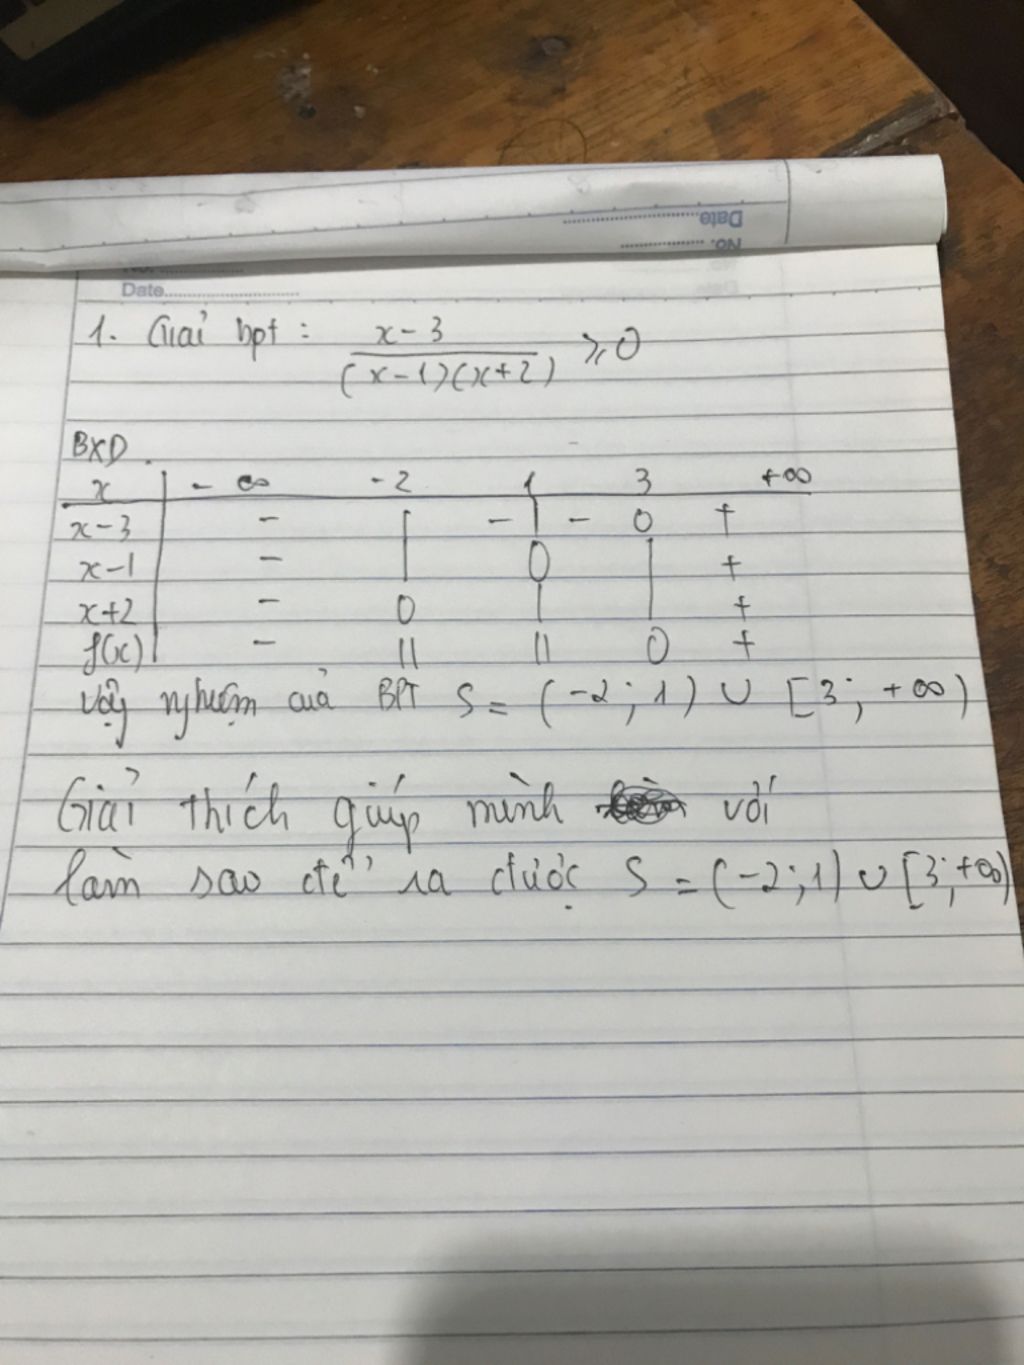 Date
No.
Date
1. Giải bpt : x-3 / (x-1)(x+2) ≥ 0
BXD
x | -∞ -2 1 3 +∞
x-3 | - | - | - 0 +
x-1 | - | 0 | +
x+2 | - 0 | | +
f(x) | - || || 0 +
Vậy nghiệm của BPT S = (-2; 1) ∪ [3; +∞)
Giải thích giúp mình với
làm sao để ra được S = (-2; 1) ∪ [3; +∞)